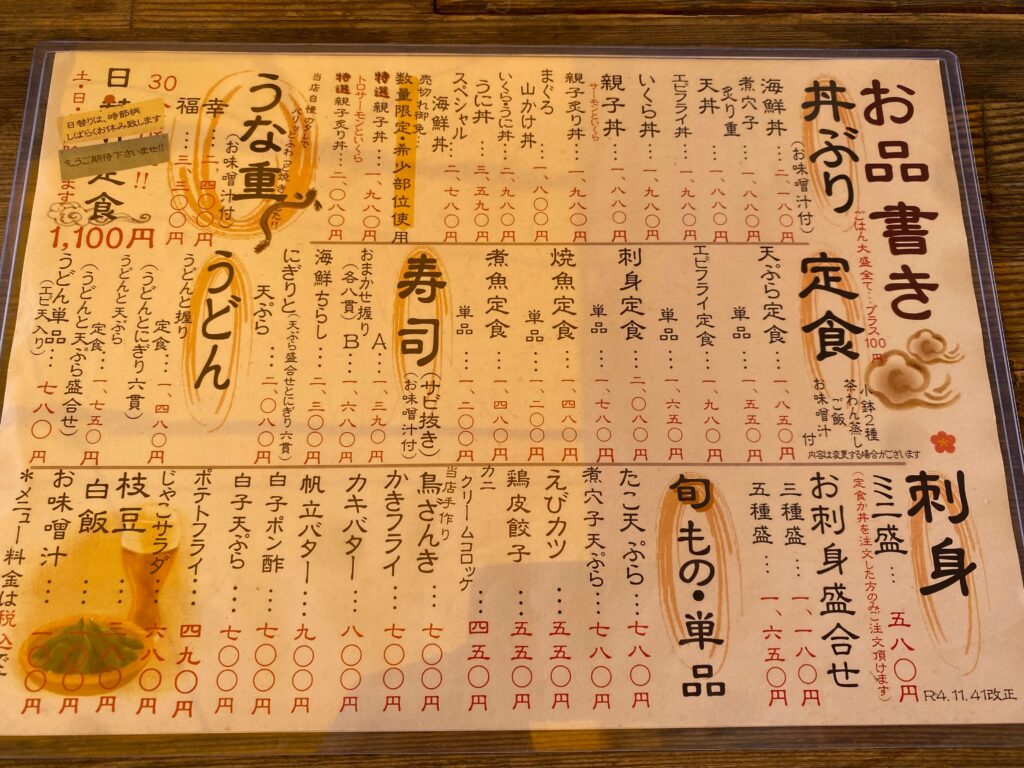 お品書き
ごはん大盛全て…プラス100円
丼ぶり
(お味噌汁付)
海鮮丼… 二、一八〇円
煮穴子
炙り重…
天丼…
エビフライ丼…
いくら丼…
親子丼…
サーモンといくら
親子炙り丼… 一、九八〇円
まぐろ
山かけ丼… 一、八八〇円
いくらうに丼…
うに丼… 三、五九〇円
スペシャル
海鮮丼… 二、七八〇円
売切れ御免
数量限定・希少部位使用
特選 親子丼… 一、九八〇円
トロサーモンといくら
特選 親子炙り丼… 二、〇八〇円
うな重
(お味噌汁付)
当店自慢のタレで
幸… 二、四〇〇円
福… 三、三〇〇円
30
日替り定食
土・日・
日替りは、時節柄
しばらくお休み致します
もうご期待下さいませ!!
1,100円
定食
小鉢2種
茶わん蒸し
ご飯
お味噌汁 付
内容は変更する場合がございます
天ぷら定食… 一、八五〇円
単品… 一、五〇〇円
エビフライ定食… 一、九八〇円
単品…
刺身定食…
単品…
焼魚定食…
単品…
煮魚定食… 一、四八〇円
単品… 一、二〇〇円
寿司
(サビ抜き)
(お味噌汁付)
おまかせ握り A… 一、三八〇円
(各八貫) B… 一、六八〇円
海鮮ちらし… 二、三〇〇円
にぎりと(天ぷら盛合せとにぎり六貫)
天ぷら… 二、〇八〇円
うどん
うどんと握り
定食… 一、四八〇円
(うどんとにぎり六貫)
うどんと天ぷら
定食… 一、七五〇円
(うどんと天ぷら盛合せ)
うどん単品… 七八〇円
(エビ天入り)
刺身
ミニ三盛… 五八〇円
(定食か丼を注文した方のみご注文頂けます)
お刺身盛合せ
三種盛… 一、一八〇円
五種盛… 一、六五〇円
旬もの・単品
たこ天ぷら… 五八〇円
煮穴子天ぷら… 七八〇円
えびカツ… 五五〇円
鶏皮餃子… 五五〇円
カニ
クリームコロッケ… 四五〇円
当店手作り
鳥ざんき… 七〇〇円
かきフライ… 七〇〇円
カキバター… 八〇〇円
帆立バター… 九〇〇円
白子ポン酢… 七〇〇円
白子天ぷら… 七〇〇円
ポテトフライ… 四九〇円
じゃこサラダ… 六八〇円
枝豆…
白飯…
お味噌汁…
*メニュー料金は税込で
R4.11.41改正